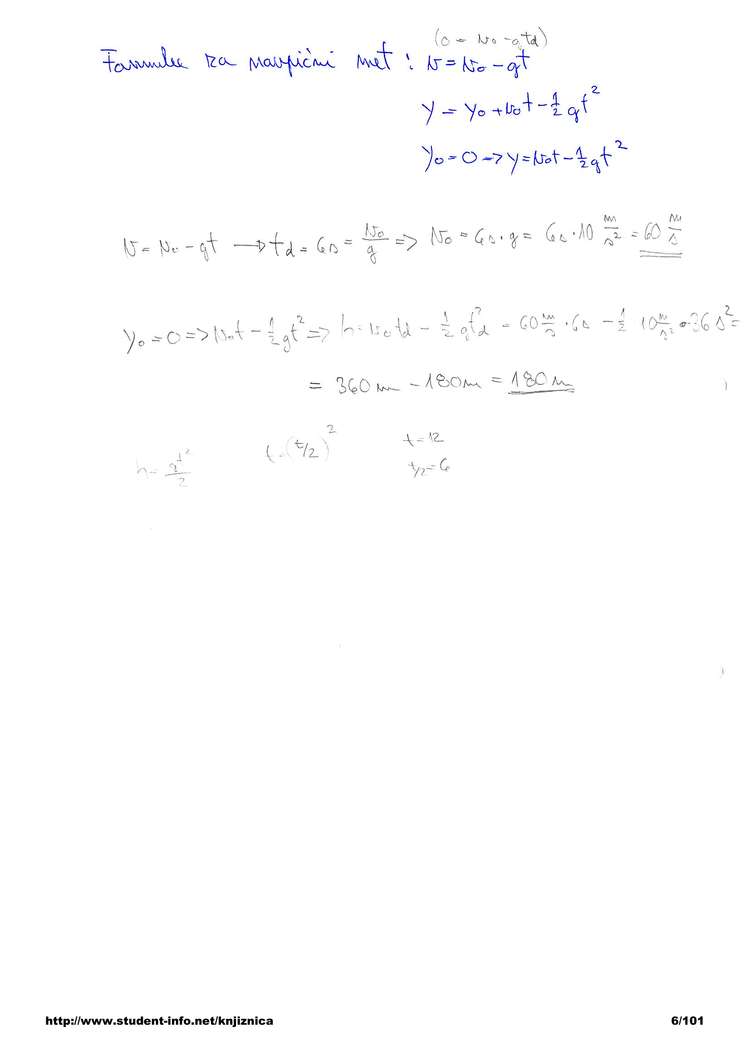 (0 = v₀ - gtd)
Formule za navpični met : v = v₀ - gt
y = y₀ + v₀t - ½gt²
y₀ = 0 → y = v₀t - ½gt²
v = v₀ - gt → td = 6s = v₀/g => v₀ = 6s · g = 6s · 10 m/s² = 60 m/s
y₀ = 0 => v₀t - ½gt² => h = v₀td - ½gtd² = 60 m/s · 6s - ½ 10 m/s² · 36 s² =
= 360 m - 180 m = 180 m
t = 12
h = gt²/2 t = (t/2)²
t/2 = 6
http://www.student-info.net/knjiznica 6/101